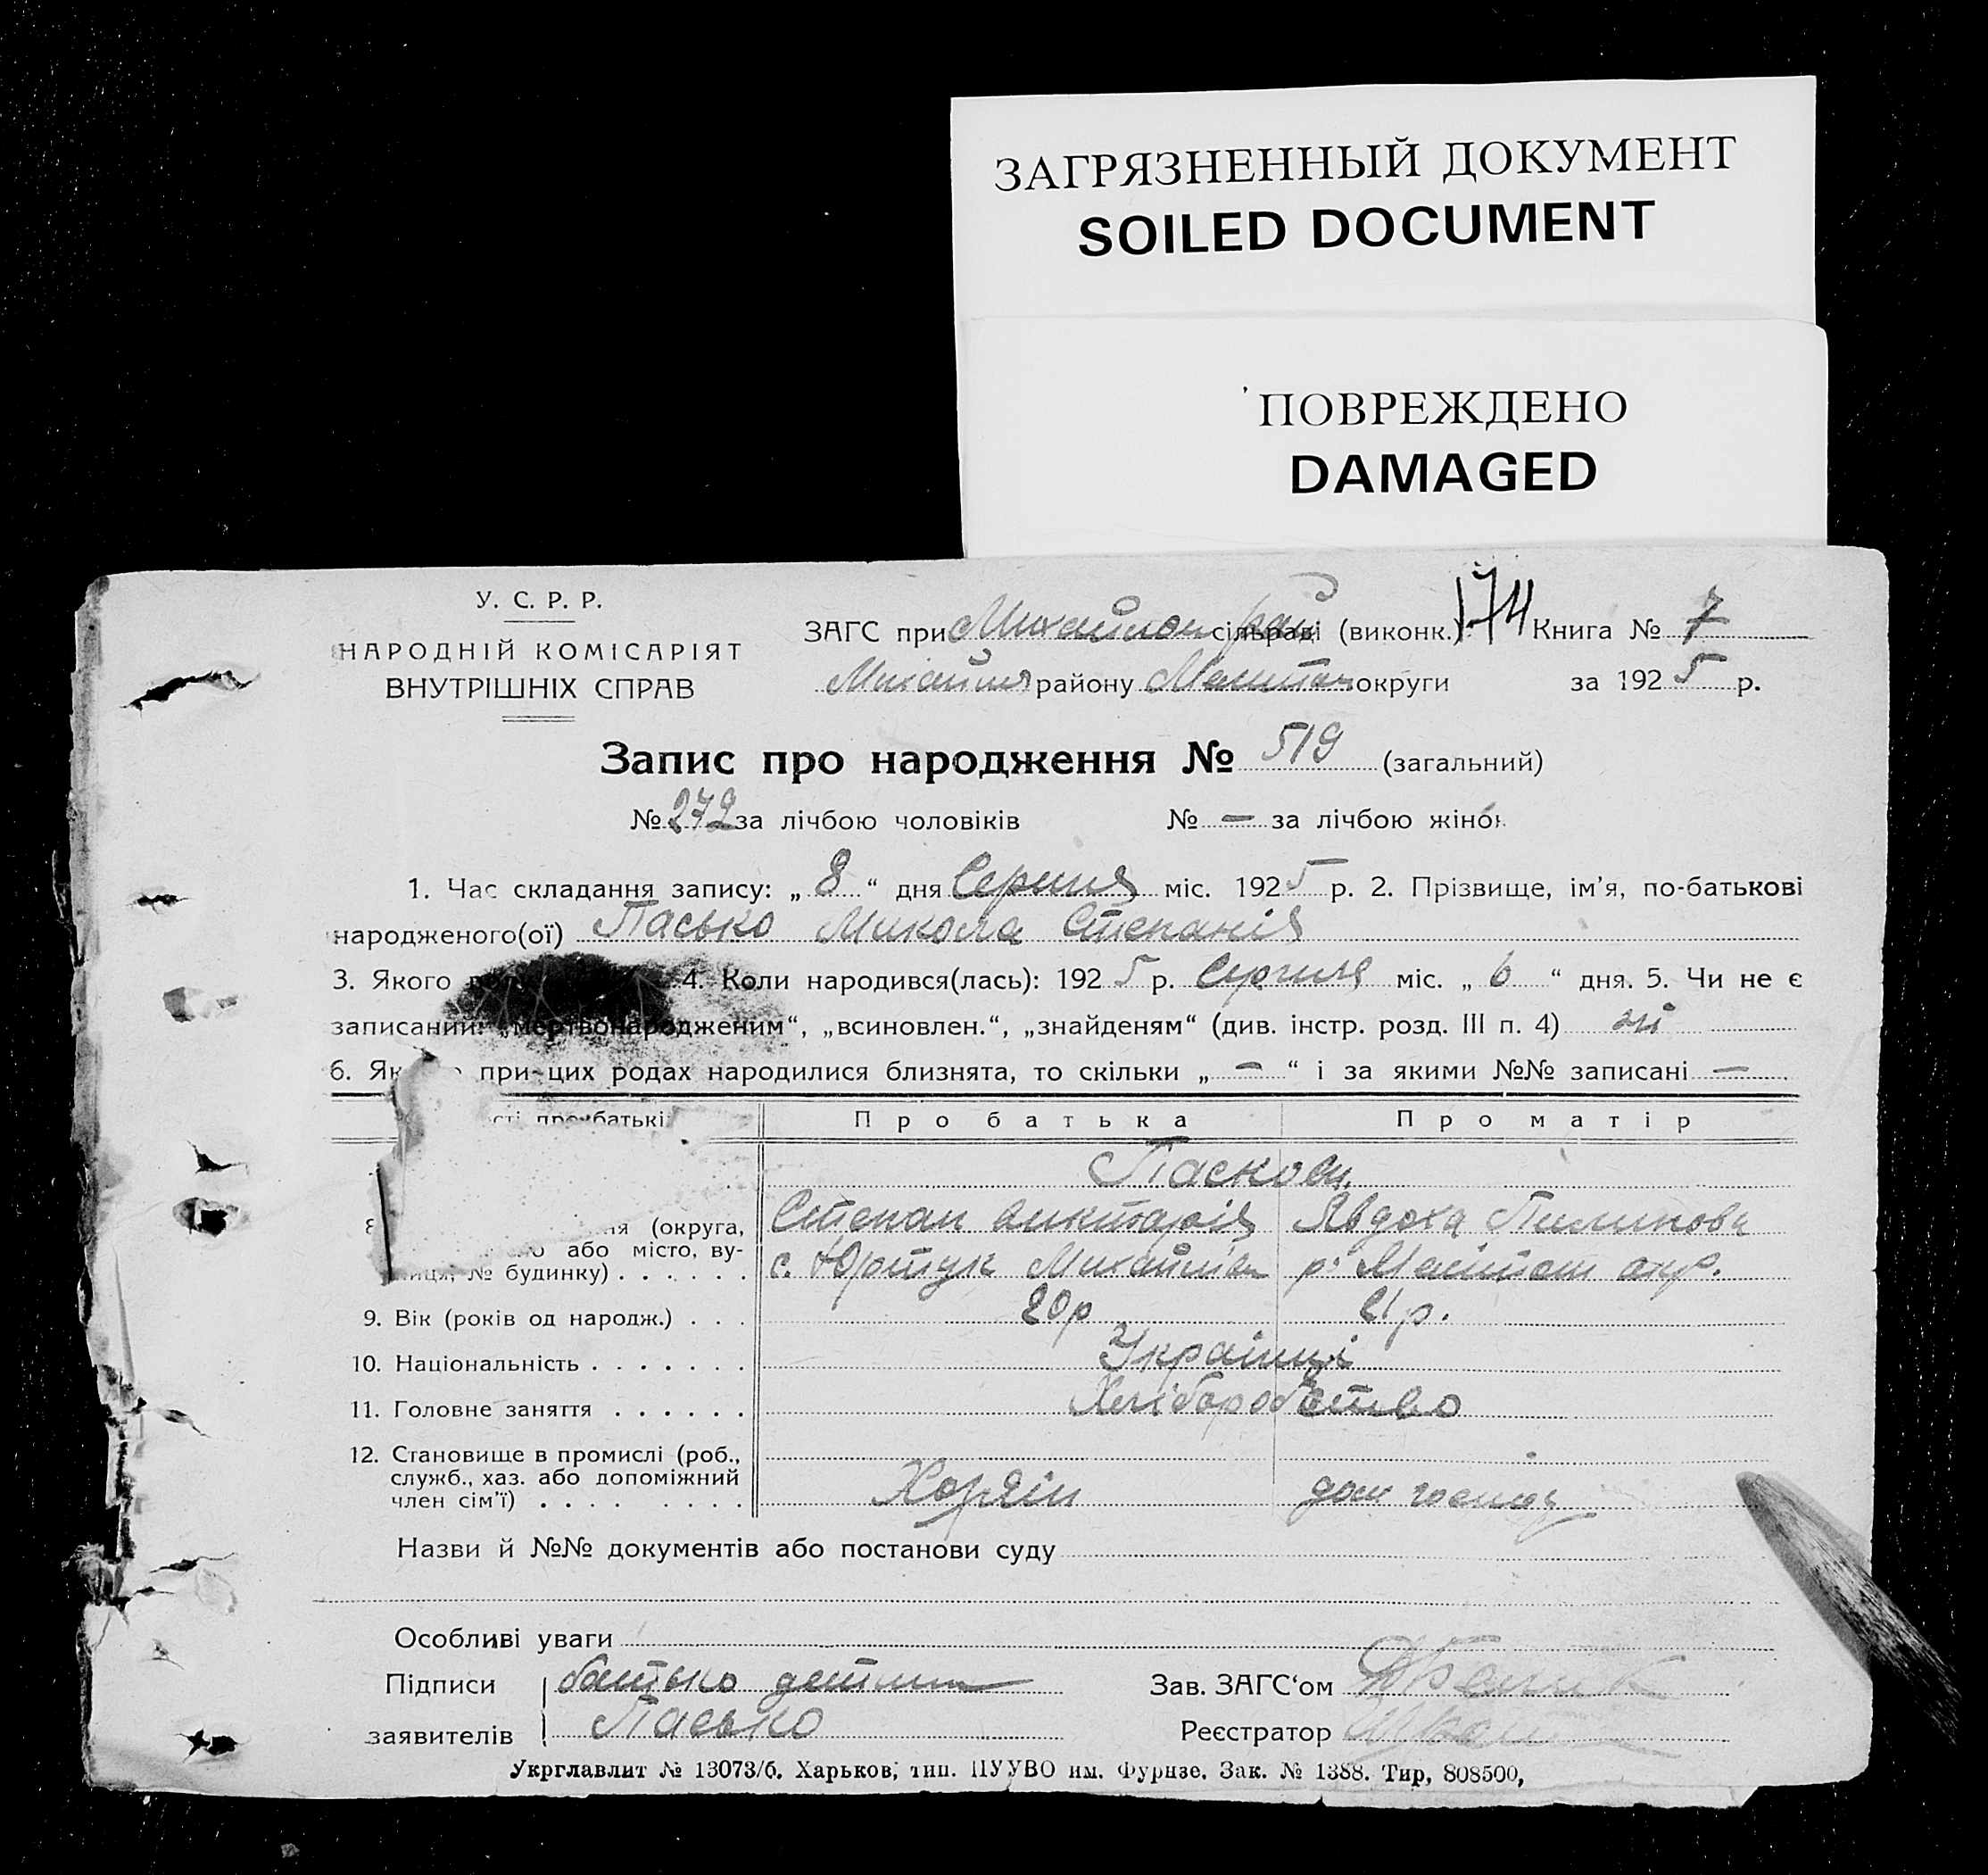 ЗАГРЯЗНЕННЫЙ ДОКУМЕНТ
SOILED DOCUMENT
ПОВРЕЖДЕНО
DAMAGED
У. С. Р. Р.
НАРОДНІЙ КОМІСАРІЯТ
ВНУТРІШНІХ СПРАВ
ЗАГС при сільраді (виконк.) 174 Книга № 7
району округи за 1925 р.
Запис про народження № 519 (загальний)
№ 272 за лічбою чоловіків № — за лічбою жінок
1. Час складання запису: „ 8 “ дня Серпня міс. 1925 р. 2. Прізвище, ім’я, по-батькові
народженого(ої) Пасько Микола Степанів
3. Якого 4. Коли народився(лась): 1925 р. Серпня міс. „ 6 “ дня. 5. Чи не є
записаний: „мертвонародженим“, „всиновлен.“, „знайденям“ (див. інстр. розд. III п. 4) ні
6. при цих родах народилися близнята, то скільки „ — “ і за якими №№ записані —
про батьків Про батька Про матір
Паскови
Степан Явдоха
(округа,
або місто, ву-
лиця, № будинку) с. Юртук р.
9. Вік (років од народж.) 20р 21 р.
10. Національність Українці
11. Головне заняття Хліборобство
12. Становище в промислі (роб.,
служб., хаз. або допоміжний
член сім’ї) Хазяїн дом
Назви й №№ документів або постанови суду
Особливі уваги
Підписи батько Зав. ЗАГС‘ом
заявителів Пасько Реєстратор
Укрглавлит № 13073/б. Харьков, тип. ПУУВО им. Фрунзе. Зак. № 1388. Тир, 808500,